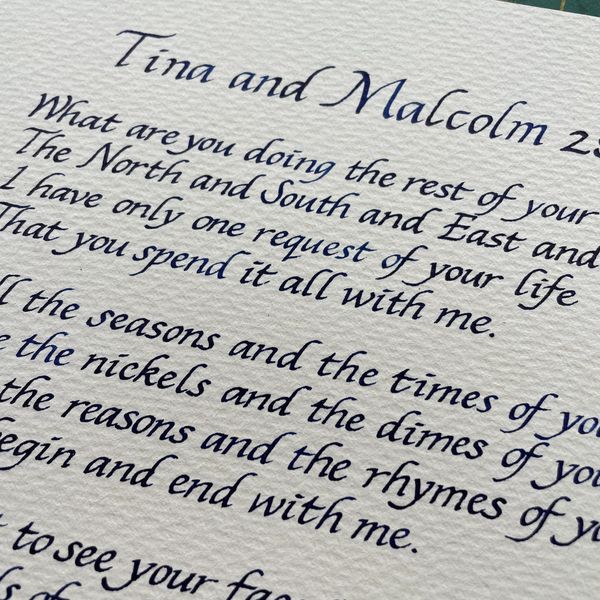 Tina and Malcolm 2
What are you doing the rest of your
The North and South and East and
I have only one request of your life
That you spend it all with me.
the seasons and the times of
the nickels and the dimes of
the reasons and the rhymes of
and end with me.
to see your